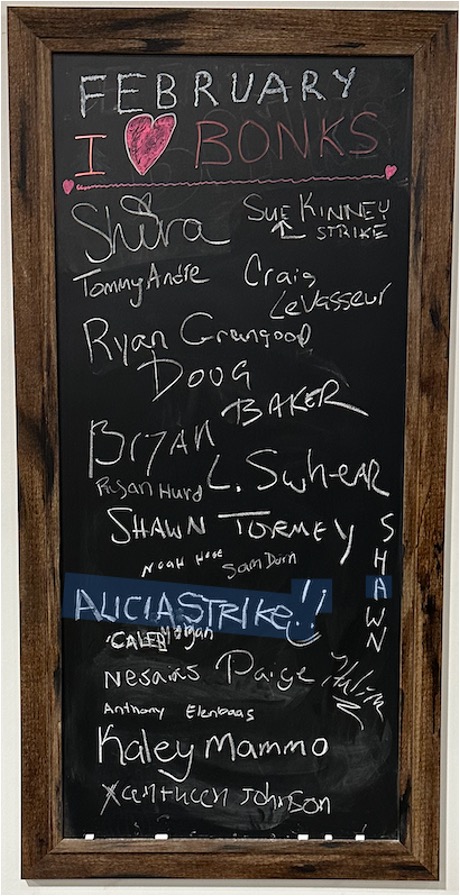 FEBRUARY
I ♥ BONKS
Shira
SUE KINNEY
STRIKE
Tommy Andre
Craig
LeVasseur
Ryan Grangood
DOUG
BAKER
BRYAN
L. Swhear
Rysan Hurd
SHAWN TORMEY
SHAWN
NOAH Hose
Sam Dorn
ALICIA STRIKE!!
CALEB
Morgan
Nesaias
Paige
Anthony Elenbaas
Kaley Mammo
Johnson